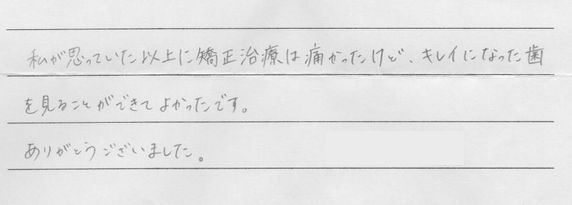 私が思っていた以上に矯正治療は痛かったけど、キレイになった歯
を見ることができてよかったです。
ありがとうございました。